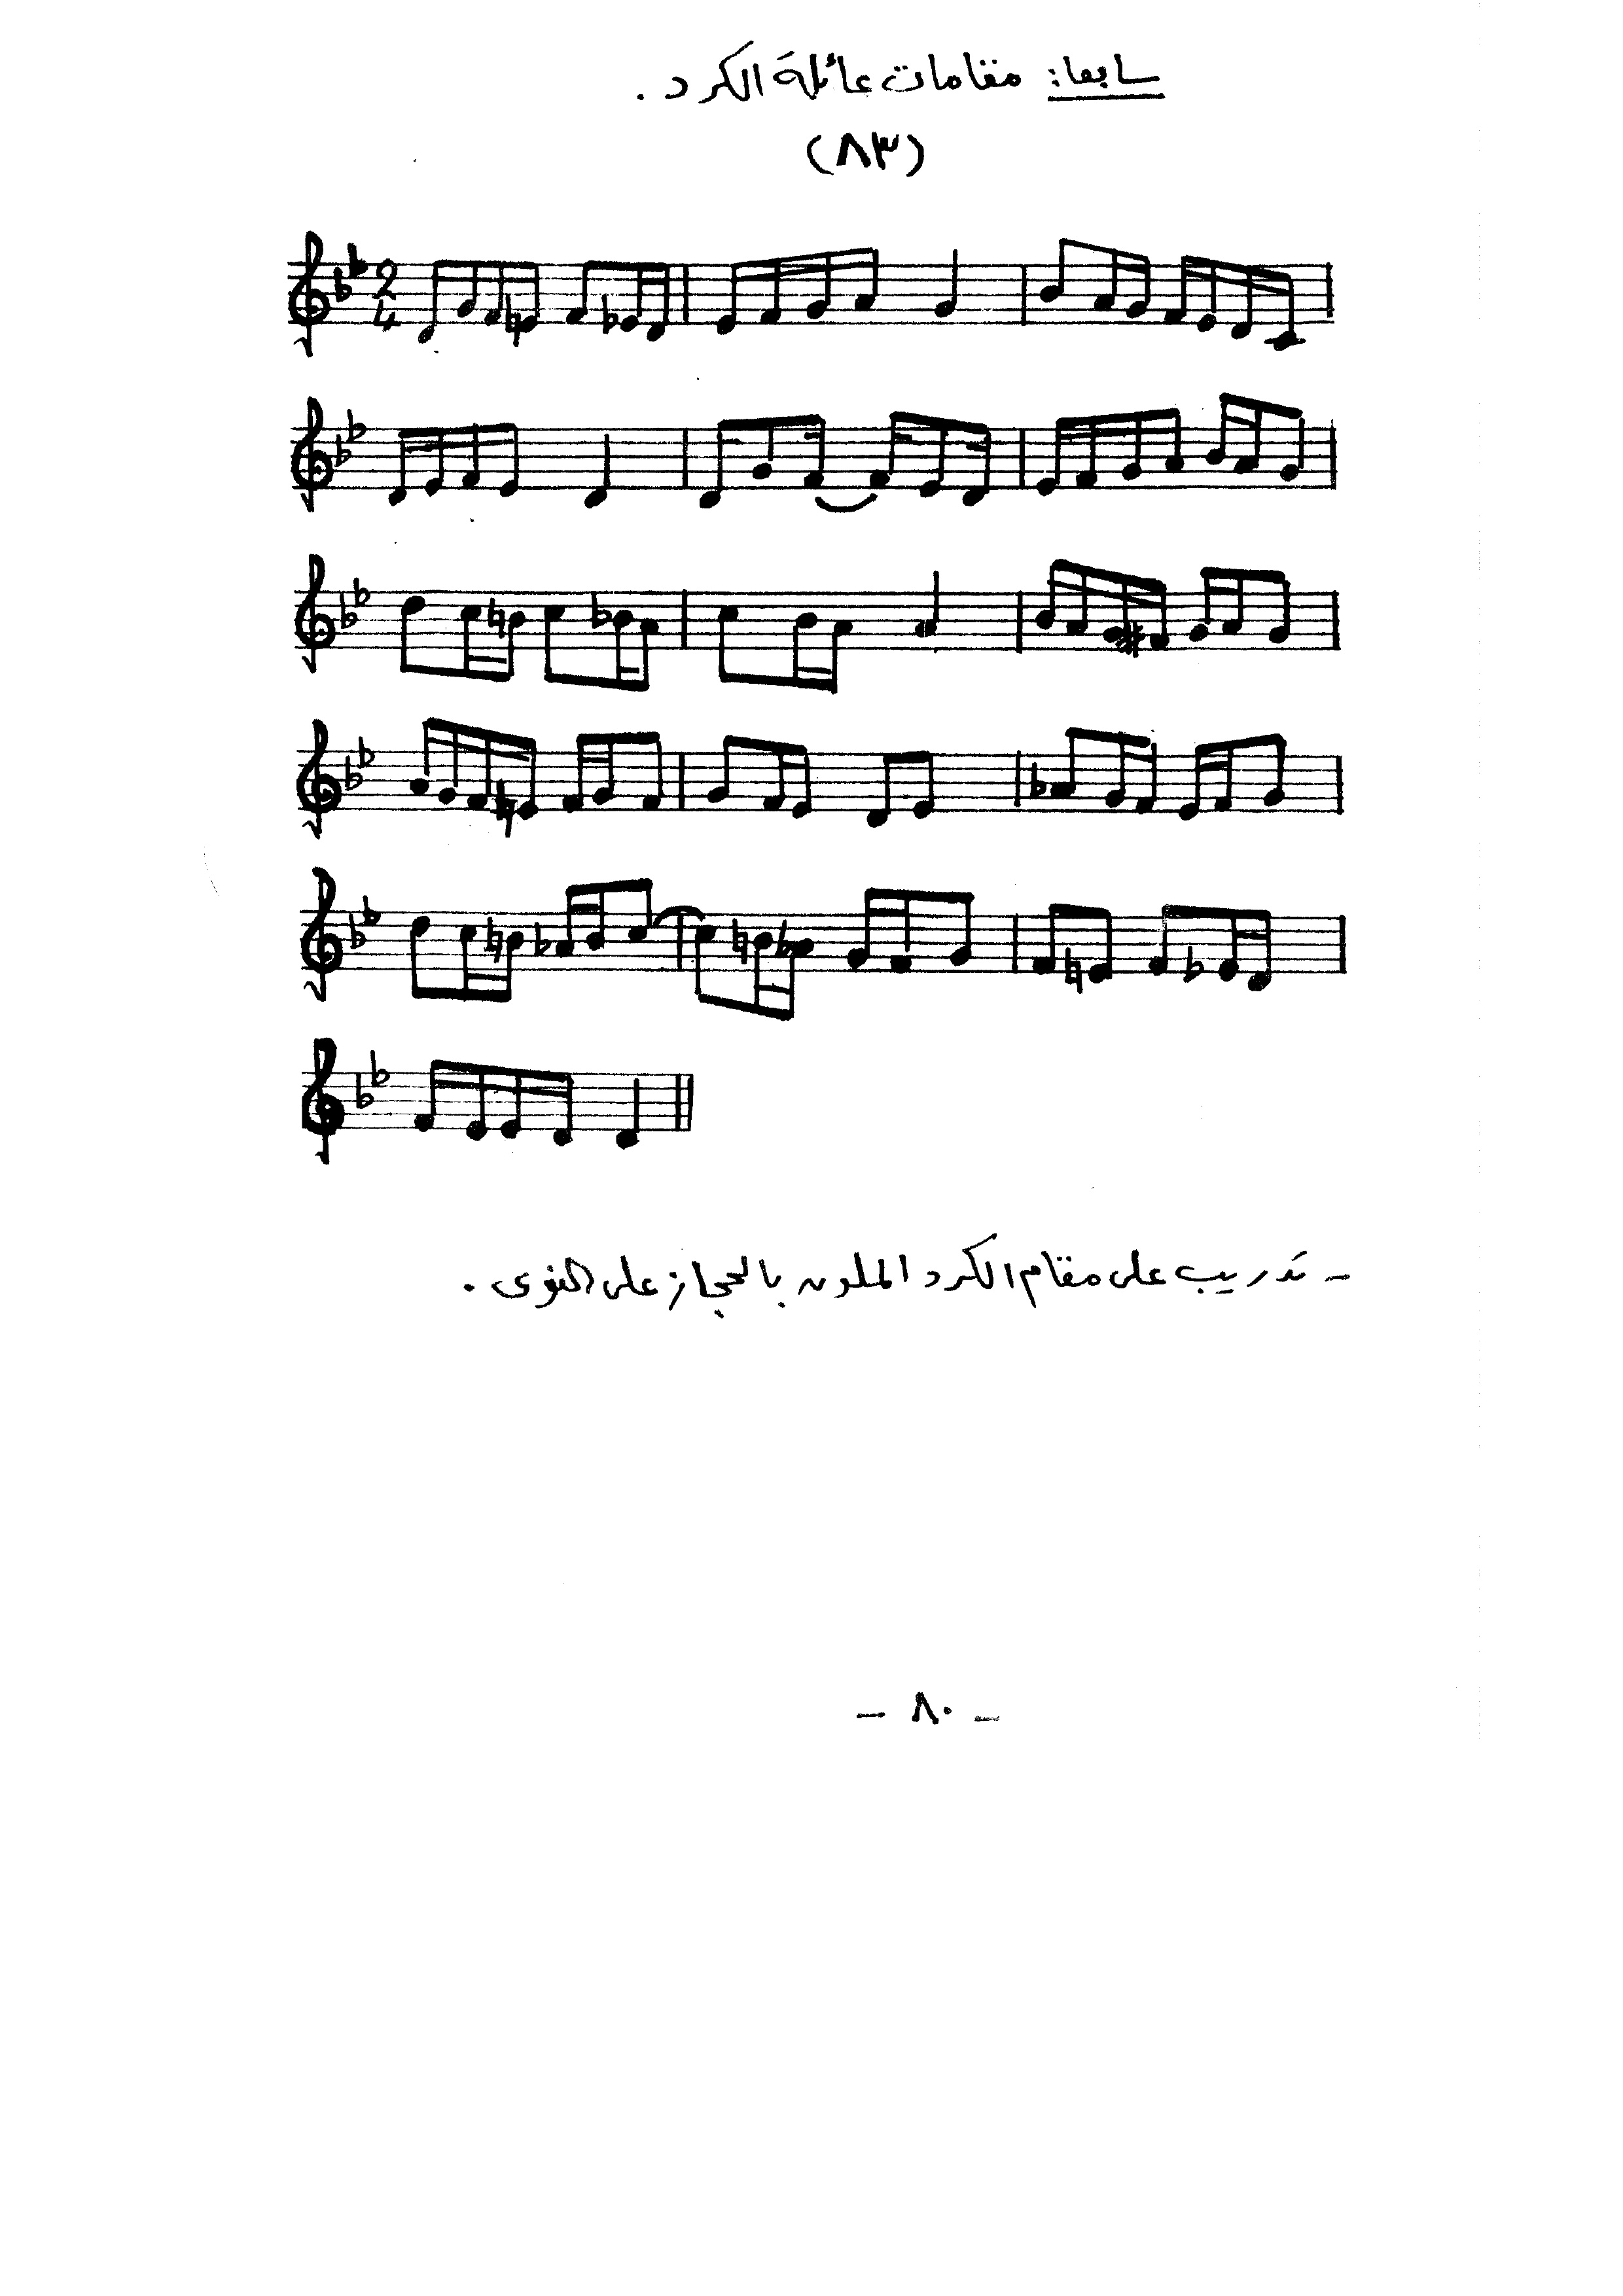 سابعا: مقامات عائلة الكرد .
(٨٣)
2
4
- تدريب على مقام الكرد الملون بالحجاز على النوى .
- ٨٠ -